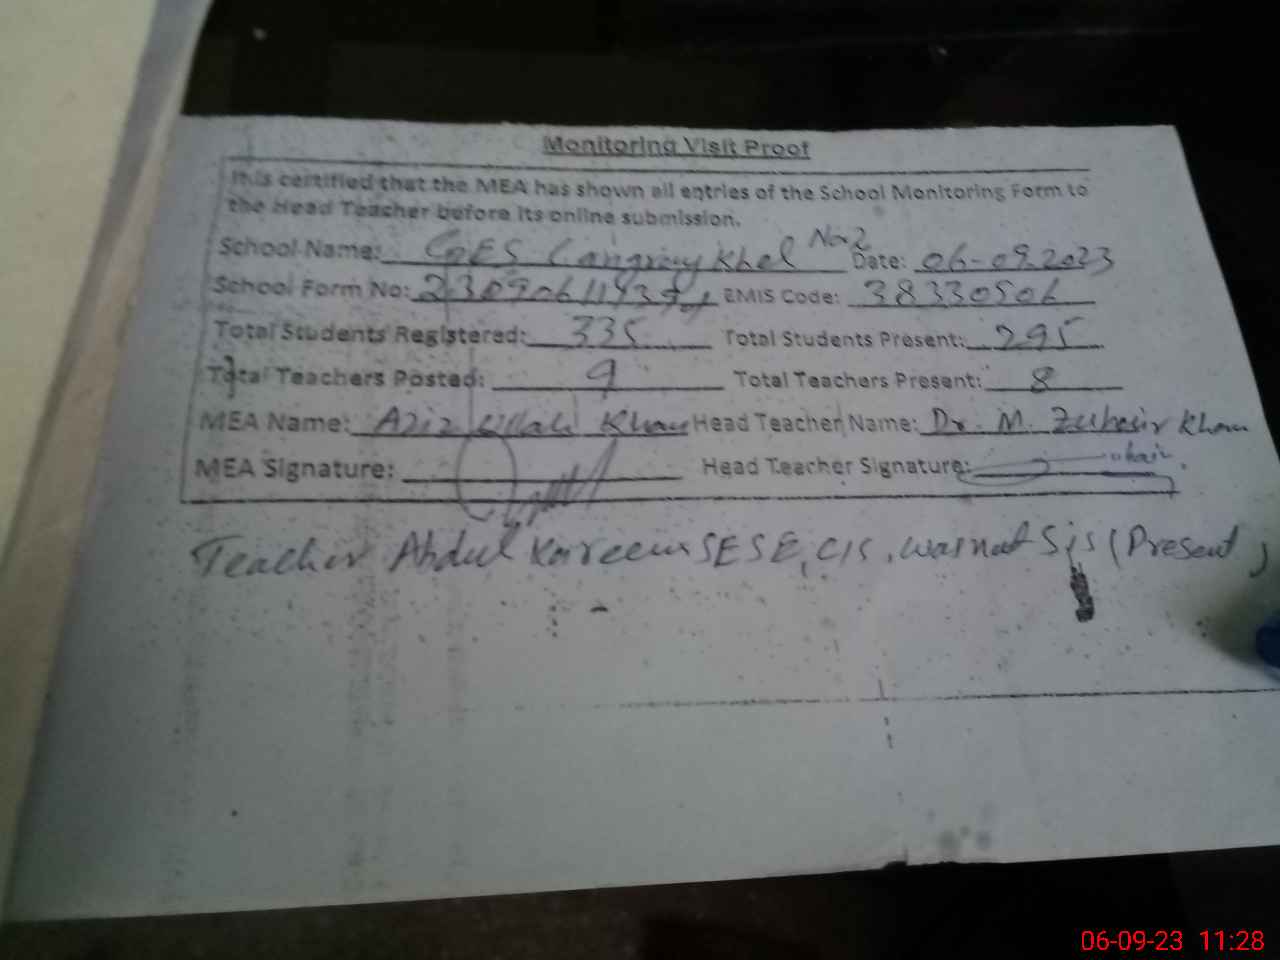 Monitoring Visit Proof
It is certified that the MEA has shown all entries of the School Monitoring Form to
the Head Teacher before its online submission.
School Name: GES Khel No 2 Date: 06-09.2023
School Form No: EMIS Code: 38330506
Total Students Registered: 335 Total Students Present: 295
Total Teachers Posted: 9 Total Teachers Present: 8
MEA Name: Aziz Ullah Khan Head Teacher Name: Dr. M. Zubair Khan
MEA Signature: Head Teacher Signature:
Teacher Abdul Kareem SESE, was not (Present)
06-09-23 11:28